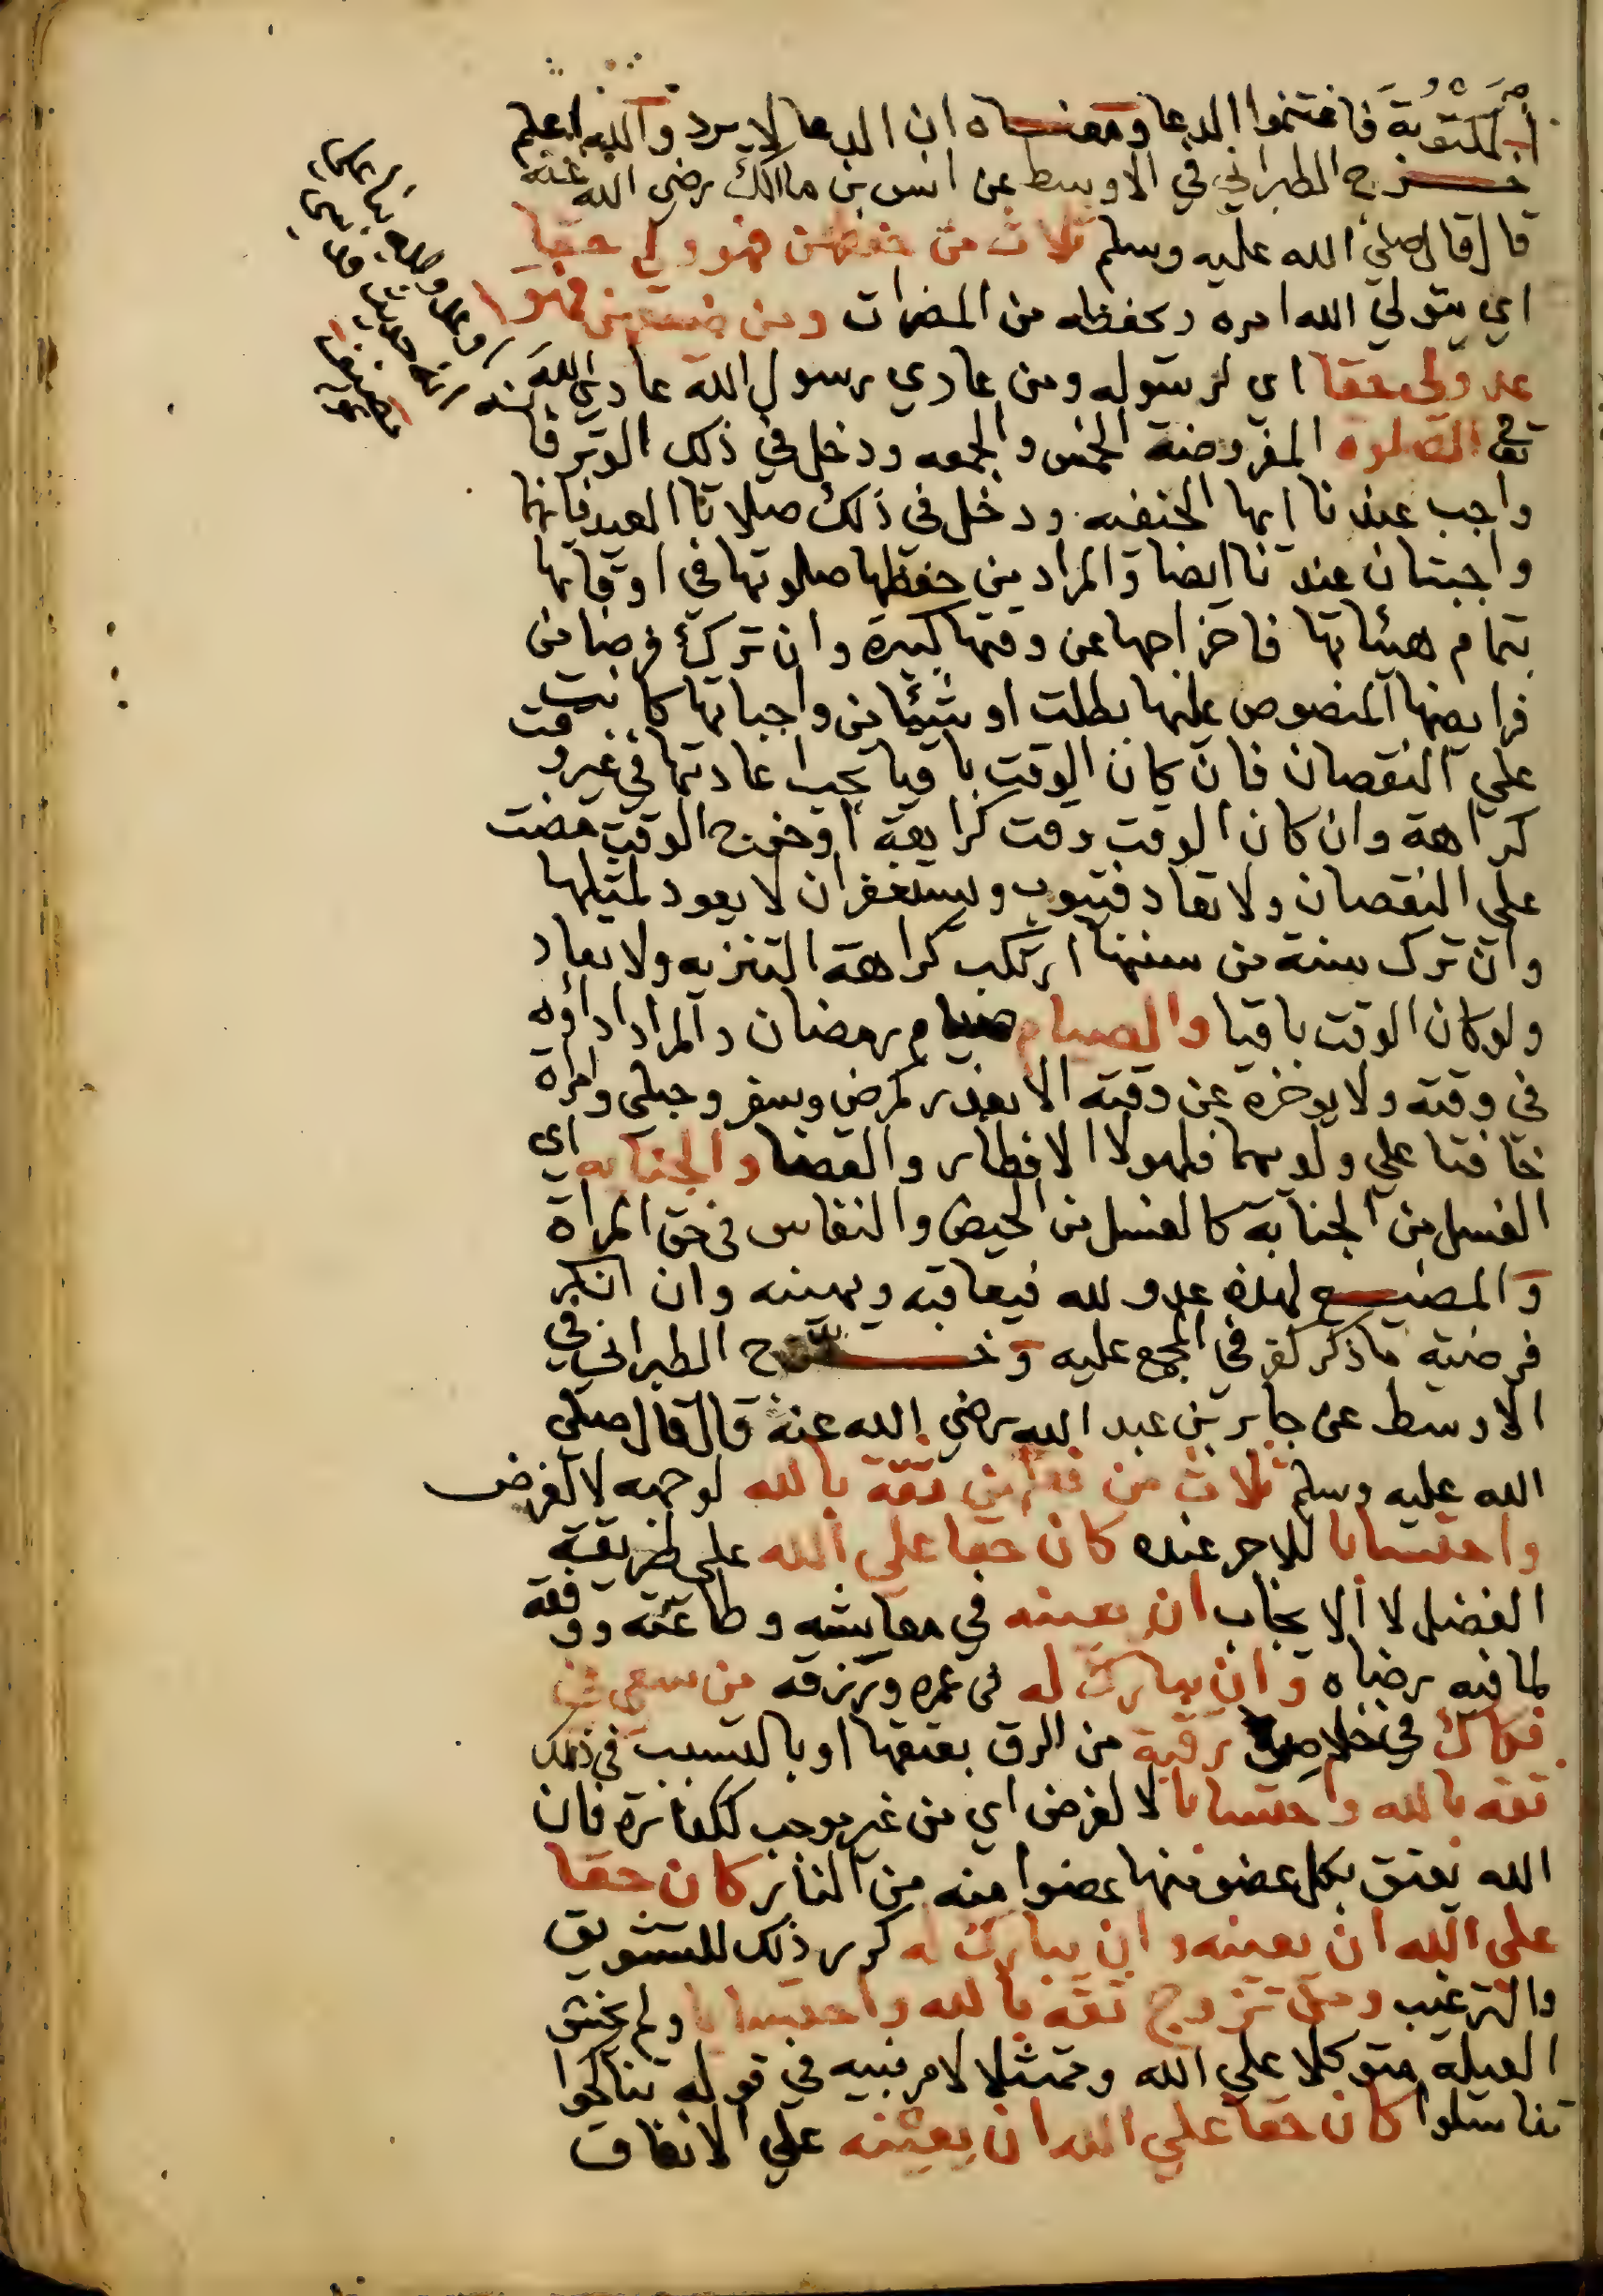 المكتوبة فاغتنموا الدعا ومعناه ان الدعا لا يرد والله اعلم
خرج الطبراني في الاوسط عن انس بن مالك رضي الله عنه
قال قال صلى الله عليه وسلم ثلاث من حفظهن فهو ولي حقا
اي يتولي الله امره ويحفظه من المضرات ومن ضيعهن فهو
عدولي حقا اي لرسوله ومن عادي رسول الله عادي الله
الصلوة المفروضة الخمس والجمعه ودخل في ذلك الوتر فانه
واجب عندنا ايها الحنفيه ودخل في ذلك صلاتا العيد فانها
واجبتان عندنا ايضا والمراد من حفظها صلوتها في اوقاتها
بتمام هيئاتها فاخراجها عن وقتها كبيرة وان ترك فرضا من
فرايضها المنصوص عليها بطلت او شيئا من واجباتها كانت
علي النقصان فان كان الوقت باقيا يجب اعادتها في غير وقت
كراهة وان كان الوقت وقت كراهة او خرج الوقت مضت
علي النقصان ولا تعاد فيتوب ويستغفر ان لا يعود لمثلها
وان ترك سنة من سننها ارتكب كراهة التنزيه ولا تعاد
ولو كان الوقت باقيا والصيام صيام رمضان والمراد اداؤه
في وقته ولا يوخره عن وقته الا بعذر كمرض وسفر وحبلى وامراة
خافتا علي ولديهما فلهولا الافطار والقضا والجنابه اي
الغسل من الجنابة كالغسل من الحيض والنفاس في حق المراة
والمضيع لهذه عدو لله فيعاقبه ويهينه وان انكر
فرضية ماذكر كفر في المجمع عليه وخرج الطبراني في
الاوسط عن جابر بن عبد الله رضي الله عنه قال قال صلى
الله عليه وسلم ثلاث من فعلهن ثقة بالله لوجهه لا لغرض
واحتسابا للاجر عنده كان حقا علي الله علي طريقة
الفضل لا الايجاب ان يعينه في معايشه وطاعته ووفقه
لما فيه رضاه وان يبارك له في عمره ورزقه من سعي في
فكاك في خلاص رقبة من الرق بعتقها او بالتسبب في ذلك
ثقة بالله واحتسابا لا لغرض اي من غير موجب ككفارة فان
الله يعتق بكل عضو منها عضوا منه من النار كان حقا
علي الله ان يعينه وان يبارك له كرر ذلك للتشويق
والترغيب ومن تزوج ثقة بالله واحتسابا ولم يخش
العيلة متوكلا علي الله وممتثلا لامر نبيه في قوله تناكحوا
تناسلوا كان حقا علي الله ان يعينه علي الانفاق